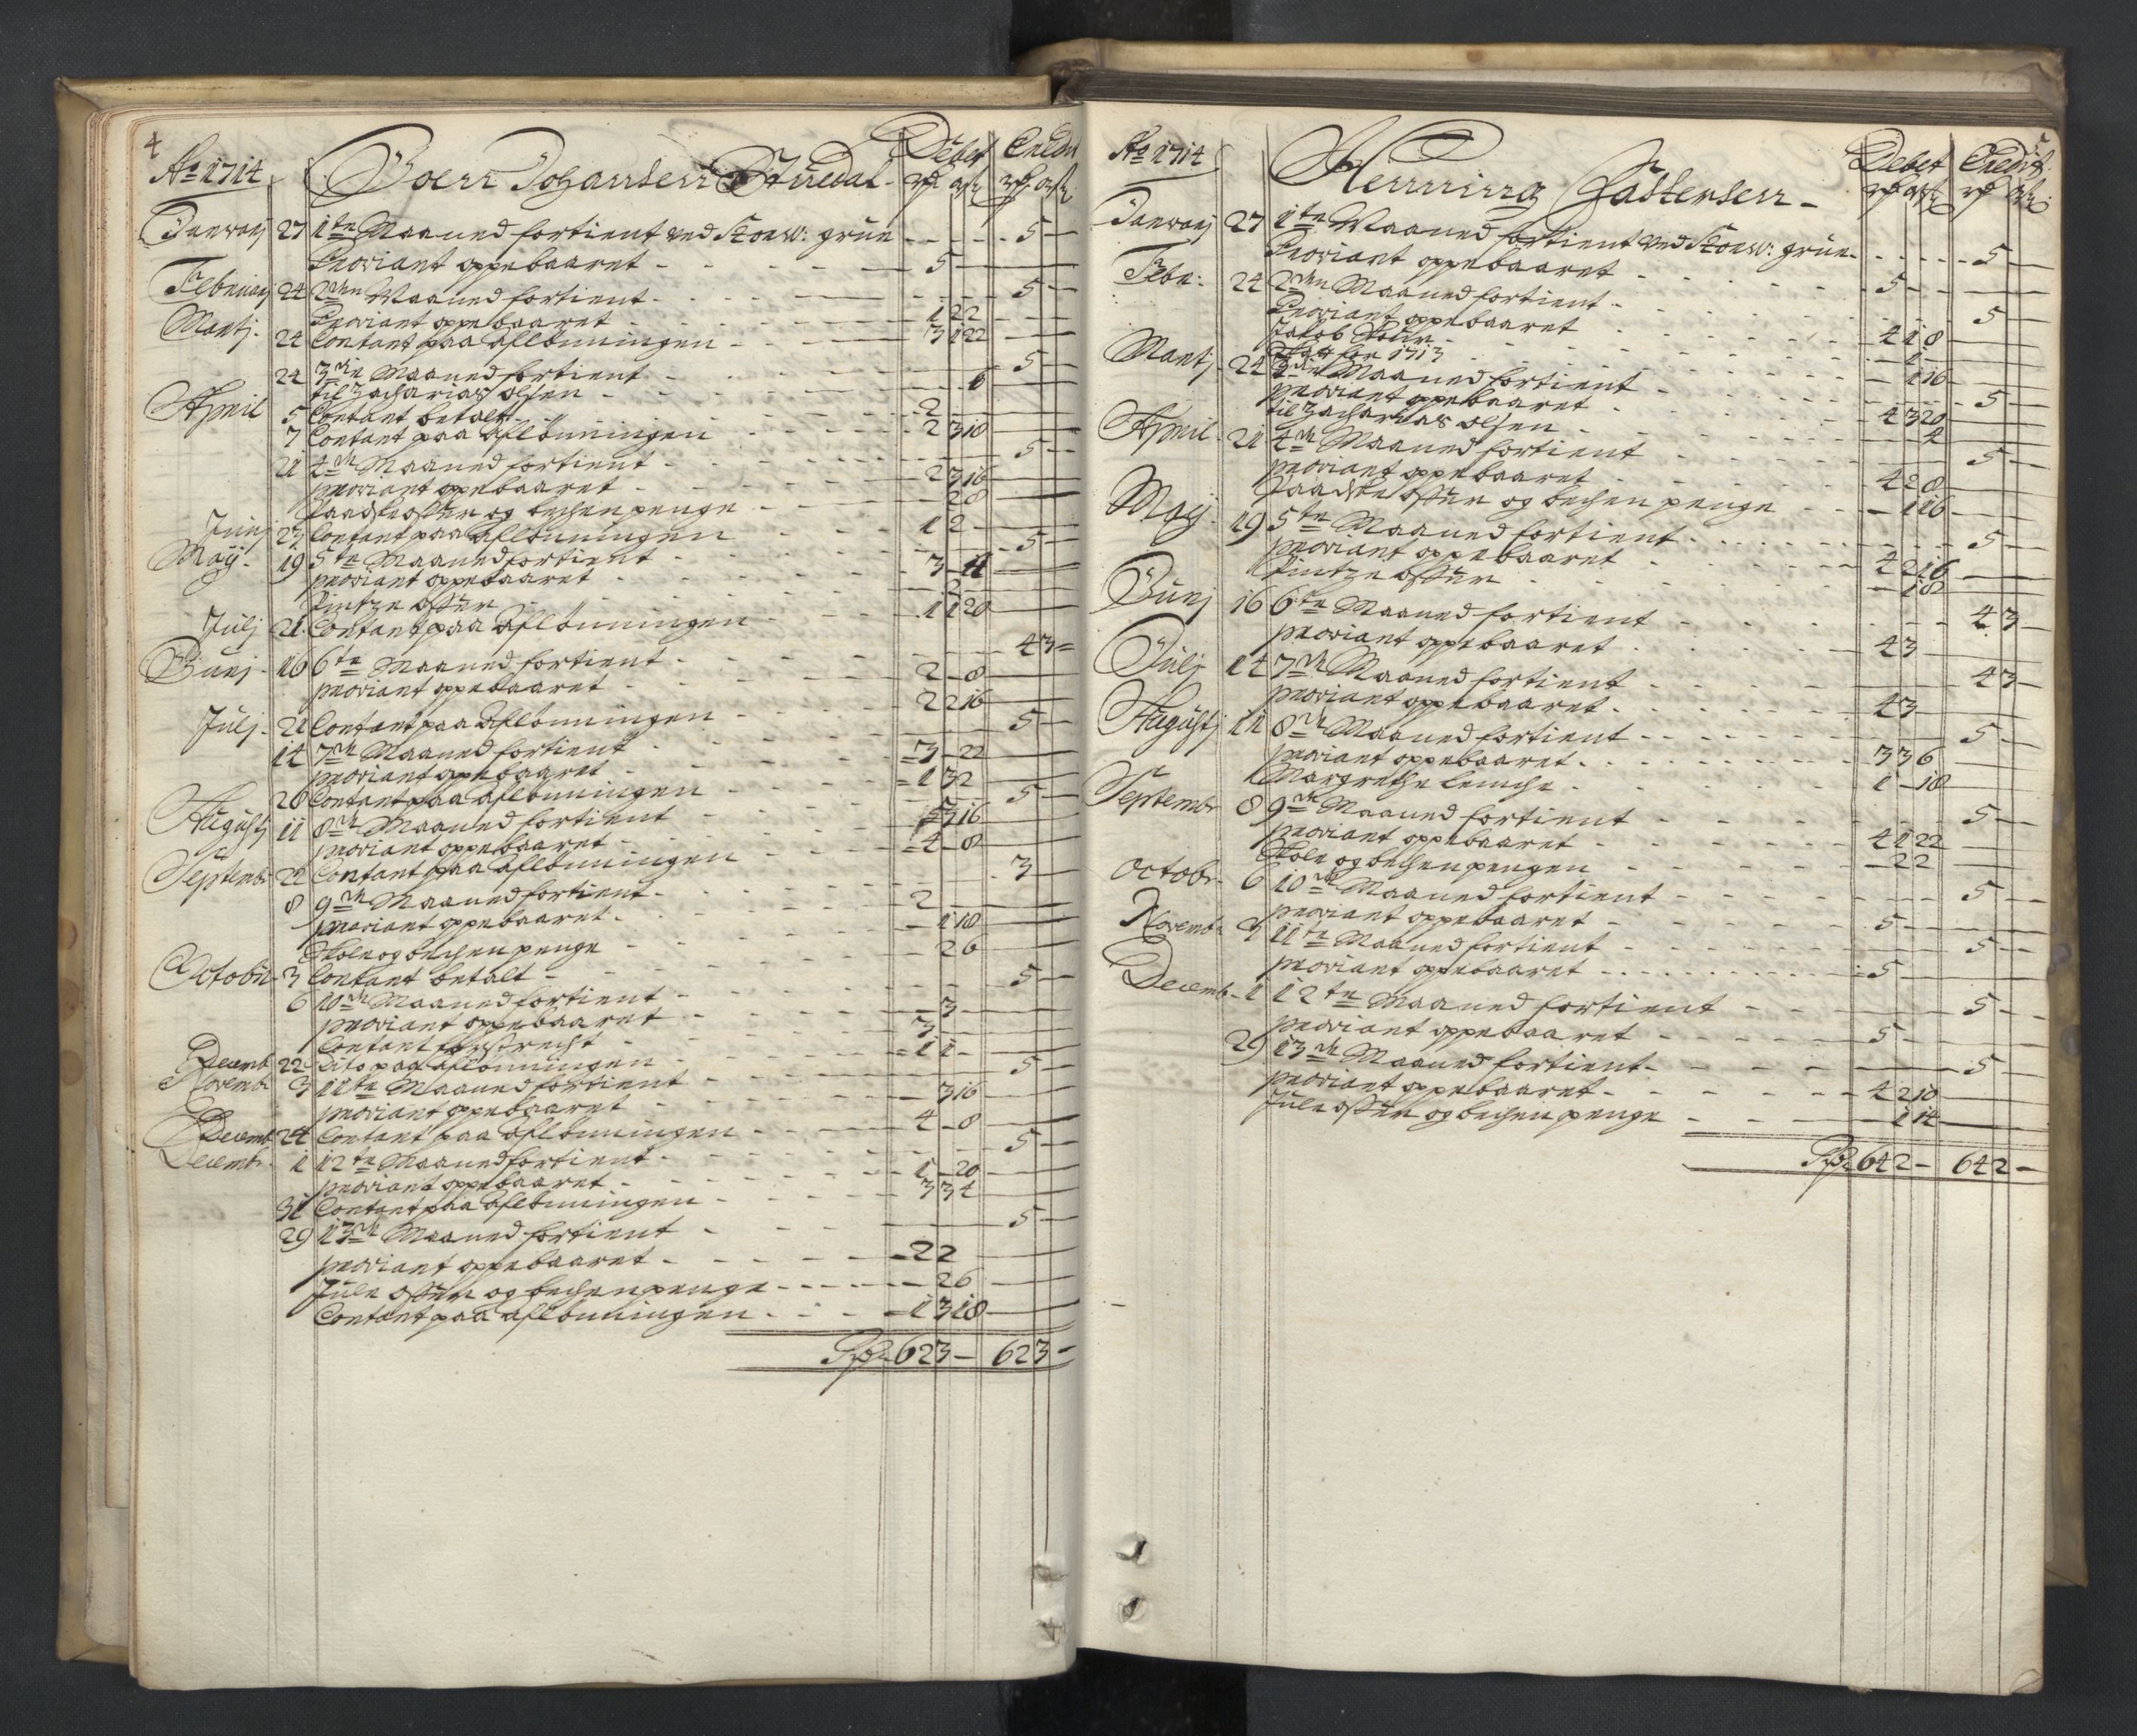 4
Ao 1714
Joen Johansen Stuedal
Debet Credit
rd ort s rd ort s
Januarj 27 1te Maaned fortient ved Storw: grue - 5 -
Proviant oppebaaret - 5 -
Februarj 24 2den Maaned fortient - 5 -
Proviant oppebaaret - 1 2 2
Martj 24 Contant paa Aflönningen - 3 1 22
24 3die Maaned fortient - 5 -
til Zacharias Olsen - 6
April 5 Contant betalt - 2 -
7 Contant paa Aflönningen - 2 3 18
21 4de Maaned fortient - 5 -
proviant oppebaaret - 2 3 16
Paadske offer og bechen penge - 2 8
Junj 23 Contant paa Aflönningen - 1 2 -
Maÿ 19 5te Maaned fortient - 5 -
proviant oppebaaret - 3 - 11
Pintze offer
Julj 21 Contant paa Aflönningen - 1 1 20
Junj 16 6te Maaned fortient - 4 3 -
proviant oppebaaret - 2 - 8
Julj 21 Contant paa Aflönningen - 2 2 16
14 7de Maaned fortient - 5 -
proviant oppebaaret - 3 - 22
28 Contant paa Aflönningen - 1 3 2
Augustj 11 8de Maaned fortient - 5 -
proviant oppebaaret - 3 16
Septembr 22 Contant paa Aflönningen - 4 - 8
8 9de Maaned fortient - 3 -
proviant oppebaaret - 2 -
Skole og bechen penge - 1 18
Octobr 3 Contant betalt - 2 6
6 10de Maaned fortient - 5 -
proviant oppebaaret - 3 -
Contant forstrecht - 3 -
Decemb 22 Dito paa Aflönningen - 1 1 -
Novemb 3 11te Maaned fortient - 5 -
proviant oppebaaret - 3 16
Decemb 24 Contant paa Aflönningen - 4 - 8
Decembr 1 12te Maaned fortient - 5 -
proviant oppebaaret - 1 - 20
31 Contant paa Aflönningen - 3 3 4
29 13de Maaned fortient - 5 -
proviant oppebaaret - 2 2
Jule offer og bechen penge - 2 6
Contant paa Aflönningen - 1 3 18
Rdr 62 3 - 62 3 -
5
Ao 1714
Henning Castensen
Debet Credit
rd ort s rd ort s
Januarj 27 1te Maaned fortient ved Storw: grue - 5 -
Proviant oppebaaret - 5 -
Febr: 24 2den Maaned fortient - 5 -
Proviant oppebaaret - 4 1 8
Jacob - 1 -
Skatt for 1713 - 1 16
Martj 24 3die Maaned fortient - 5 -
proviant oppebaaret - 4 3 20
til Zacharias Olsen - 4
April 21 4de Maaned fortient - 5 -
proviant oppebaaret - 4 2 8
Paadske offer og bechen penge - 1 16
Maÿ 19 5te Maaned fortient - 5 -
proviant oppebaaret - 4 2 16
Pintze offer - 18
Junj 16 6te Maaned fortient - 4 3 -
proviant oppebaaret - 4 3
Julj 14 7de Maaned fortient - 4 3 -
proviant oppebaaret - 4 3
Augustj 11 8de Maaned fortient - 5 -
proviant oppebaaret - 3 3 6
Margrethe - 1 - 18
Septembr 8 9de Maaned fortient - 5 -
proviant oppebaaret - 4 1 22
Skole og bechen pengen - 2 2
Octobr 6 10de Maaned fortient - 5 -
proviant oppebaaret - 5 -
Novembr 3 11te Maaned fortient - 5 -
proviant oppebaaret - 5 -
Decemb 1 12te Maaned fortient - 5 -
proviant oppebaaret - 5 -
29 13de Maaned fortient - 5 -
proviant oppebaaret - 4 2 10
Jule offer og bechen penge - 1 14
Rdr 64 2 - 64 2 -